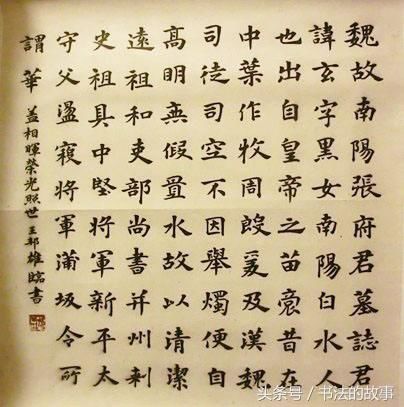 魏故南陽張府君墓誌君
諱玄字黑女南陽白水人
也出自皇帝之苗裔昔在
中葉作牧周殷爰及漢魏
司徒司空不因舉燭便自
高明無假置水故以清潔
遠祖和吏部尚書并州刺
史祖具中堅將軍新平太
守父盪寇將軍蒲坂令所
謂華盖相暉榮光照世王邦雄臨書
头条号 / 书法的故事